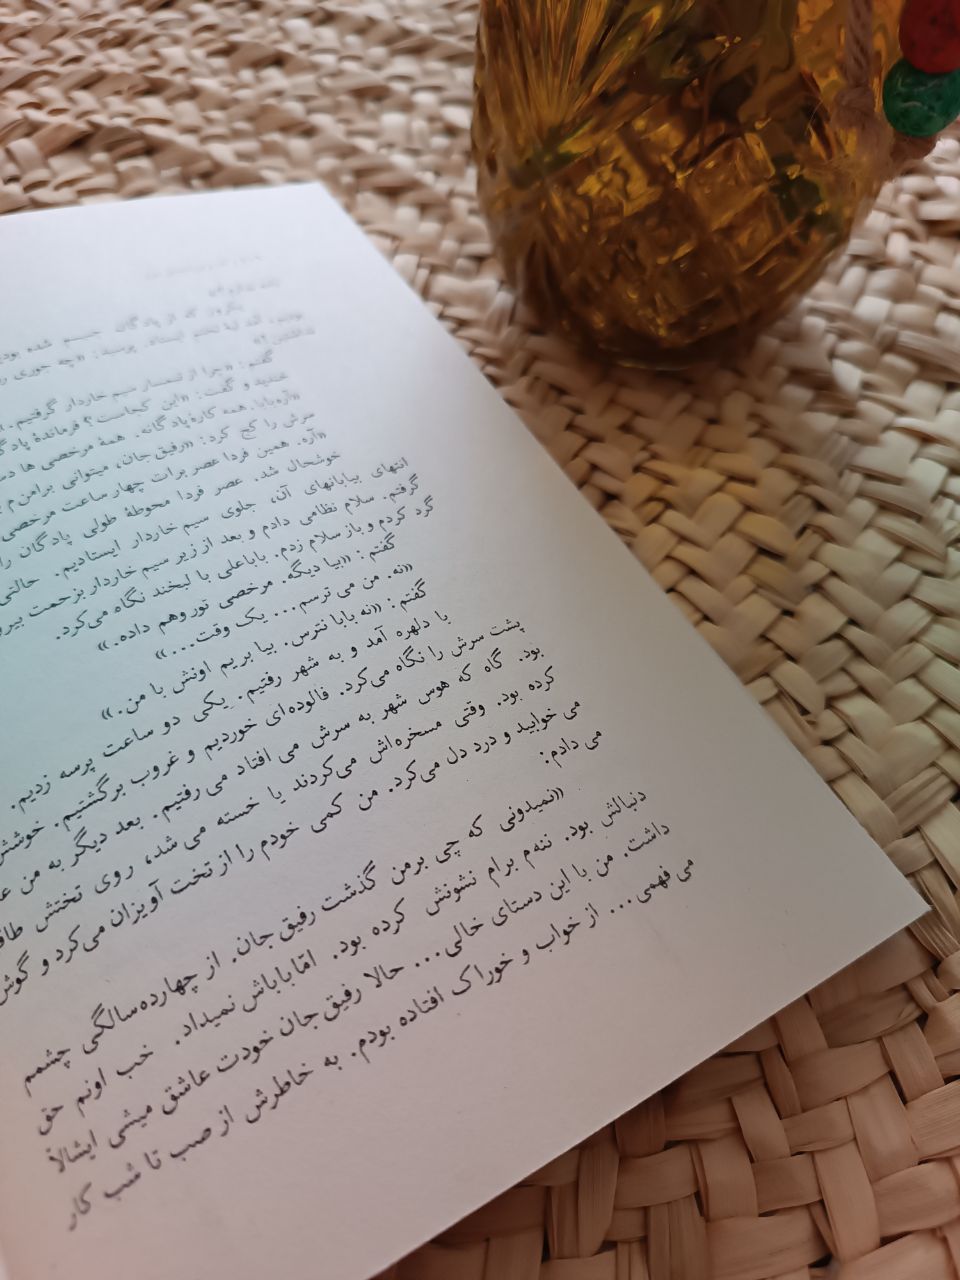 یکروز که از پادگان خسته شده بودیم
گفتم: «چرا از تنمسار سیم خاردار گرفتیم.»
خندید و گفت: «این کجاست؟ فرماندهٔ پادگ
«آره بابا. همه کاره پادگانه. همهٔ مرخصی ها دس
سرش را کج کرد: «رفیق جان، میتوانی برامن م
«آره. همین فردا عصر برات چهار ساعت مرخصی
خوشحال شد. عصر فردا محوطهٔ طولی پادگان را
انتهای بیابانهای آن، جلوی سیم خاردار ایستادیم. حالتی
گرفتم. سلام نظامی دادم و بعد از زیر سیم خاردار بزحمت بیرو
گرد کردم و باز سلام زدم. باباعلی با لبخند نگاه می‌کرد.
گفتم: «بیا دیگه. مرخصی تو روهم داده.»
«نه. من می ترسم... یک وقت...»
گفتم: «نه بابا نترس. بیا بریم اونش با من.»
با دلهره آمد و به شهر رفتیم. یکی دو ساعت پرسه زدیم.
پشت سرش را نگاه می‌کرد. فالوده‌ای خوردیم و غروب برگشتیم. خوشش
بود. گاه که هوس شهر به سرش می افتاد می رفتیم. بعد دیگر به من عا
کرده بود. وقتی مسخره‌اش می‌کردند یا خسته می شد، روی تختش طاق
می خوابید و درد دل می‌کرد. من کمی خودم را از تخت آویزان می‌کرد و گوش
می دادم:
«نمیدونی که چی برمن گذشت رفیق جان. از چهارده‌سالگی چشمم
دنبالش بود. ننه‌م برام نشونش کرده بود. امّا باباش نمیداد. خب اونم حق
داشت. من با این دستای خالی... حالا رفیق جان خودت عاشق میشی ایشالاً
می فهمی... از خواب و خوراک افتاده بودم. به خاطرش از صب تا شب کار